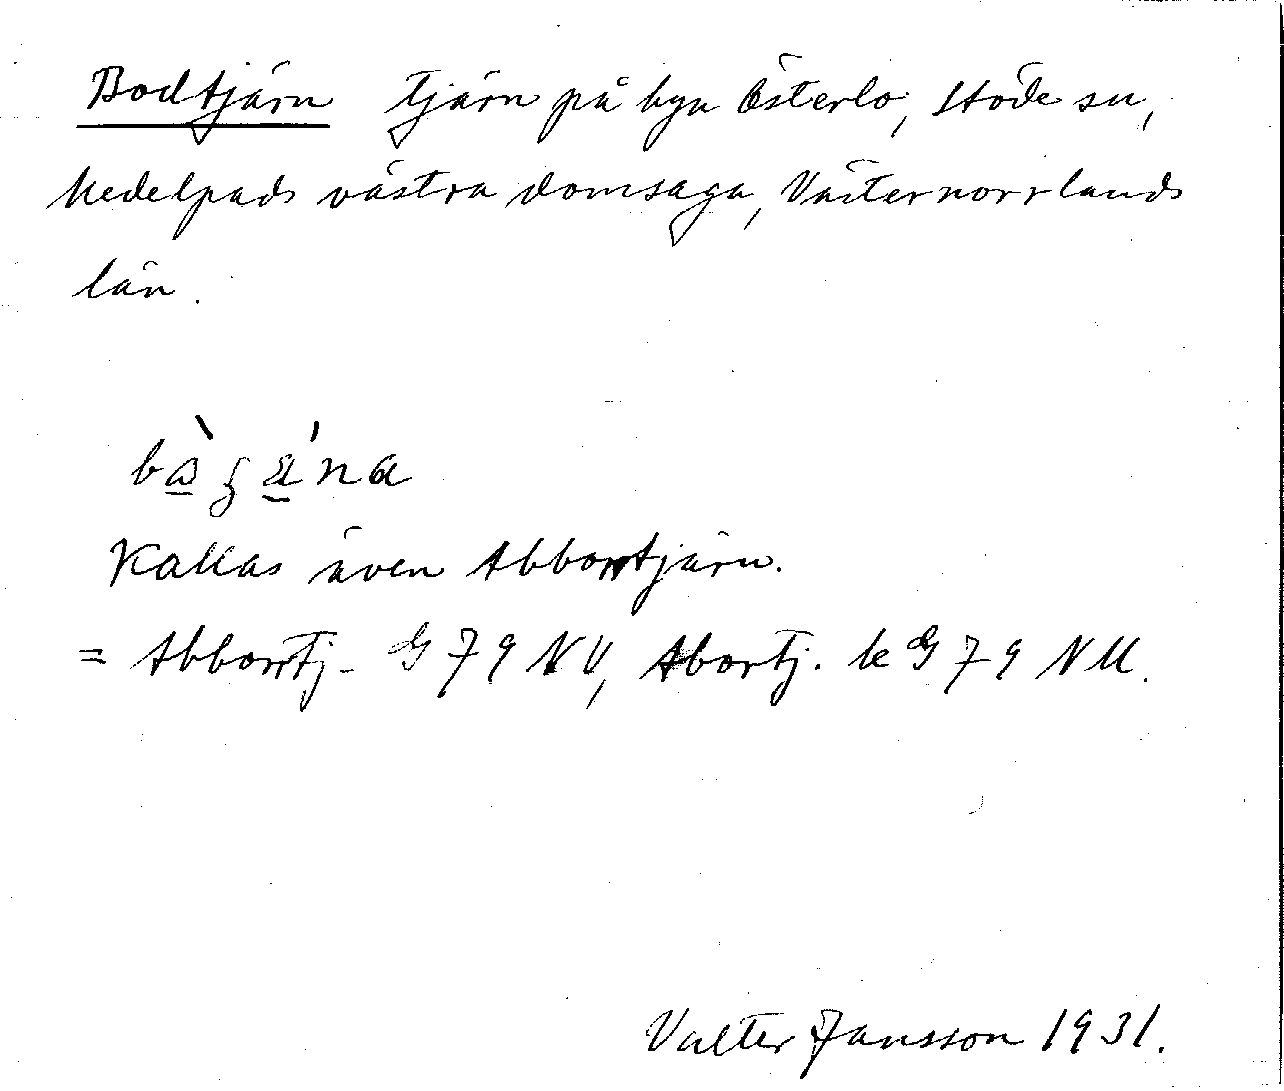 Bodtjärn tjärn på byn Österlo, Stöde sn,
Medelpads västra domsaga, Västernorrlands
län.
Kallas även Abborrtjärn.
= Abborrtj. G 79 NV, Abortj. k G 79 NU.
Valter Jansson 1931.